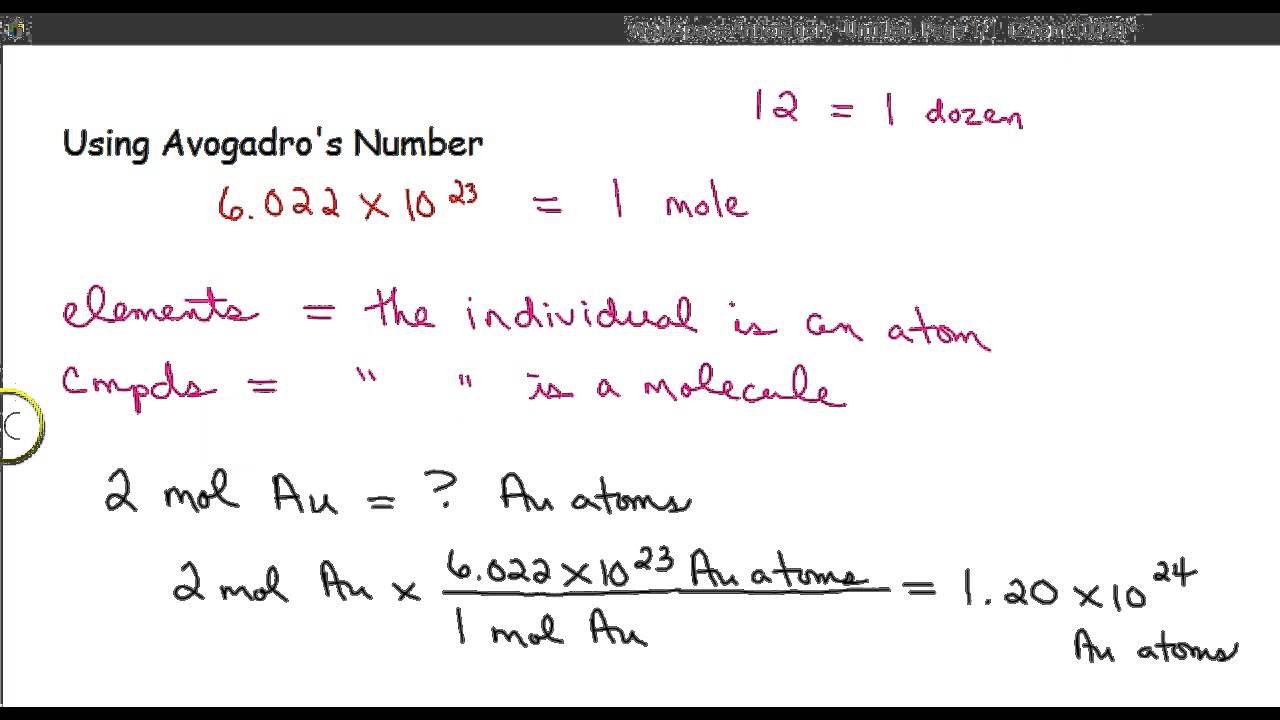 12 = 1 dozen
Using Avogadro's Number
6.022 × 10^23 = 1 mole
elements = the individual is an atom
Cmpds = " " is a molecule
C
2 mol Au = ? Au atoms
2 mol Au × 6.022 × 10^23 Au atoms / 1 mol Au = 1.20 × 10^24
Au atoms